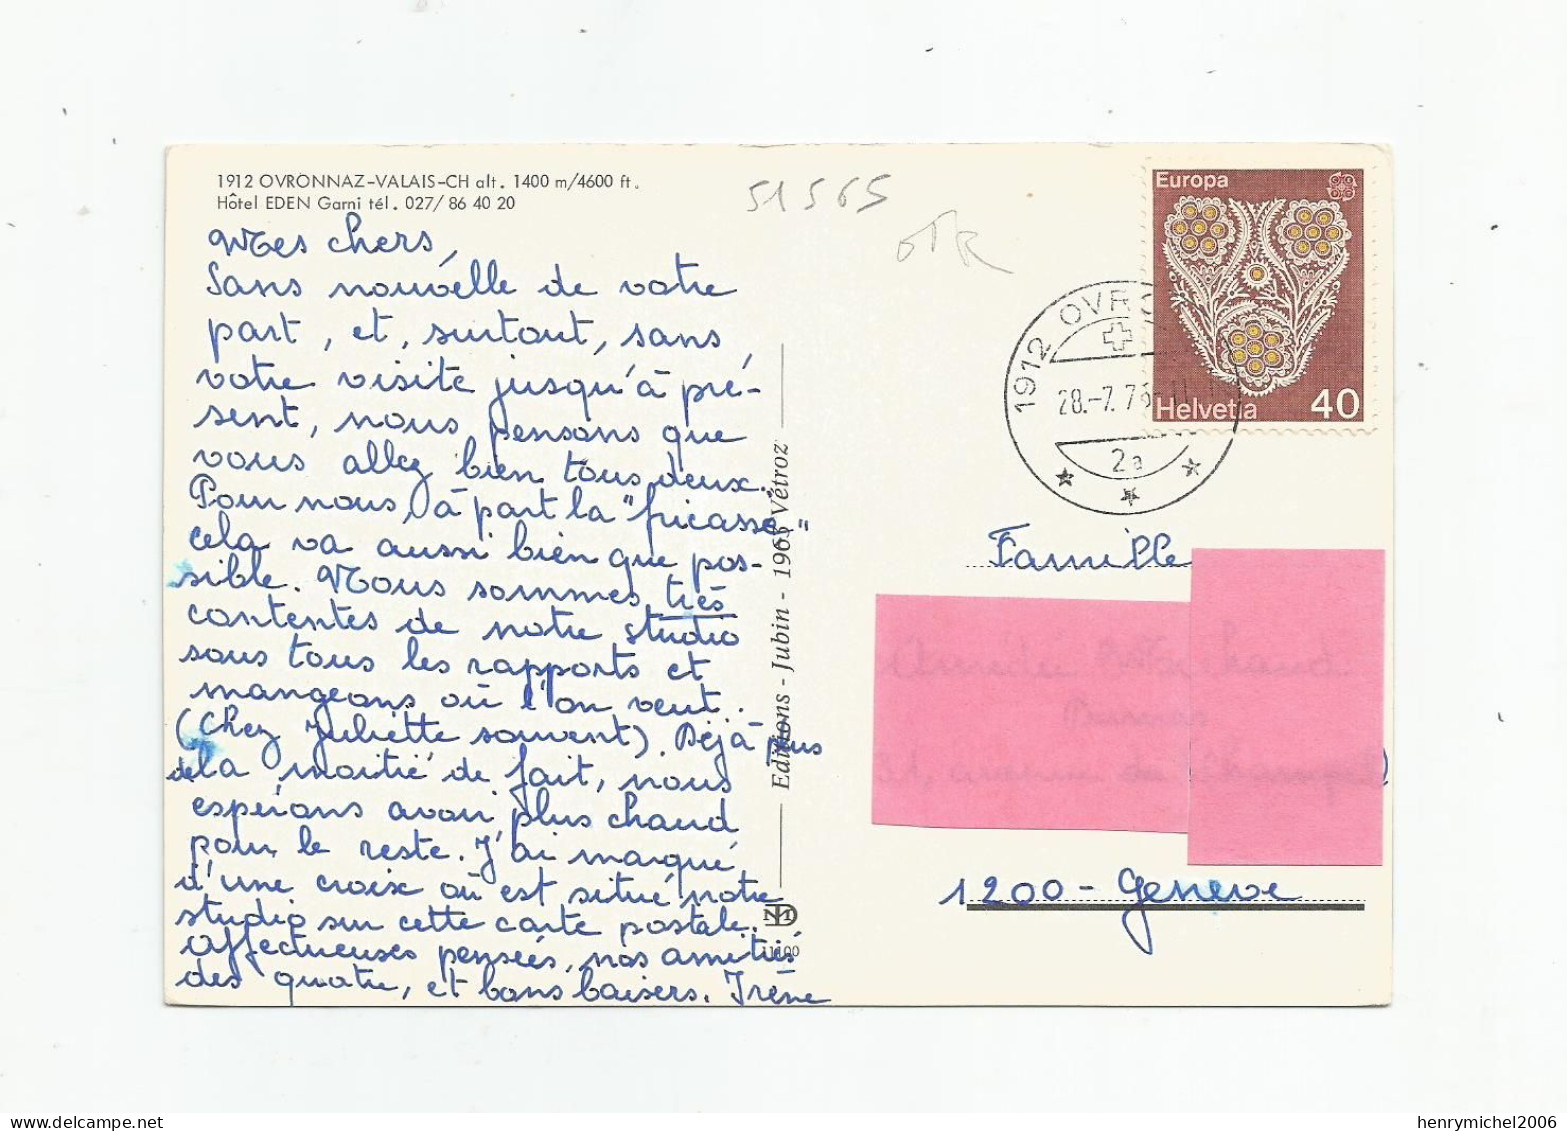 1912 OVRONNAZ-VALAIS-CH alt. 1400 m/4600 ft.
Hôtel EDEN Garni tél. 027/86 40 20
Mes chers,
Sans nouvelle de votre
part, et, surtout, sans
votre visite jusqu'à pré-
sent, nous pensons que
vous allez bien tous deux.
Pour nous, à part la "fricasse"
cela va aussi bien que pos-
sible. Nous sommes très
contentes de notre studio
sous tous les rapports et
mangeons où l'on veut.
(Chez Juliette souvent). Déjà plus
de la moitié de fait, nous
espérons avoir plus chaud
pour le reste. J'ai marqué
d'une croix où est situé notre
studio sur cette carte postale.
Affectueuses pensées, nos amitiés
des quatre, et bons baisers. Irène
Editions - Jubin - 1963 Vétroz
11100
51565
Europa
Helvetia 40
1912 OVRO
28.-7.76
2a
Famille
1200 - Genève
henrymichel2006